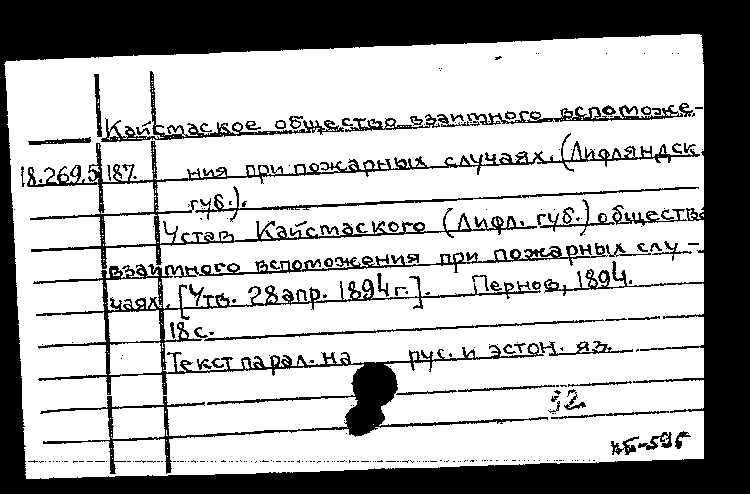 Кайстаское общество взаимного вспоможе-
18.269.5 187. ния при пожарных случаях. (Лифляндск.
губ.).
Устав Кайстаского (Лифл. губ.) общества
взаимного вспоможения при пожарных слу-
чаях. [Утв. 28 апр. 1894 г.]. Пернов, 1894.
18 с.
Текст парал. на рус. и эстон. яз.
32.